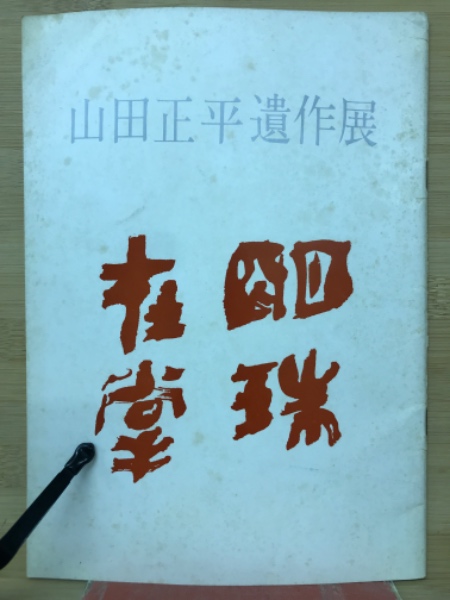 山田正平遺作展
明珠
在掌